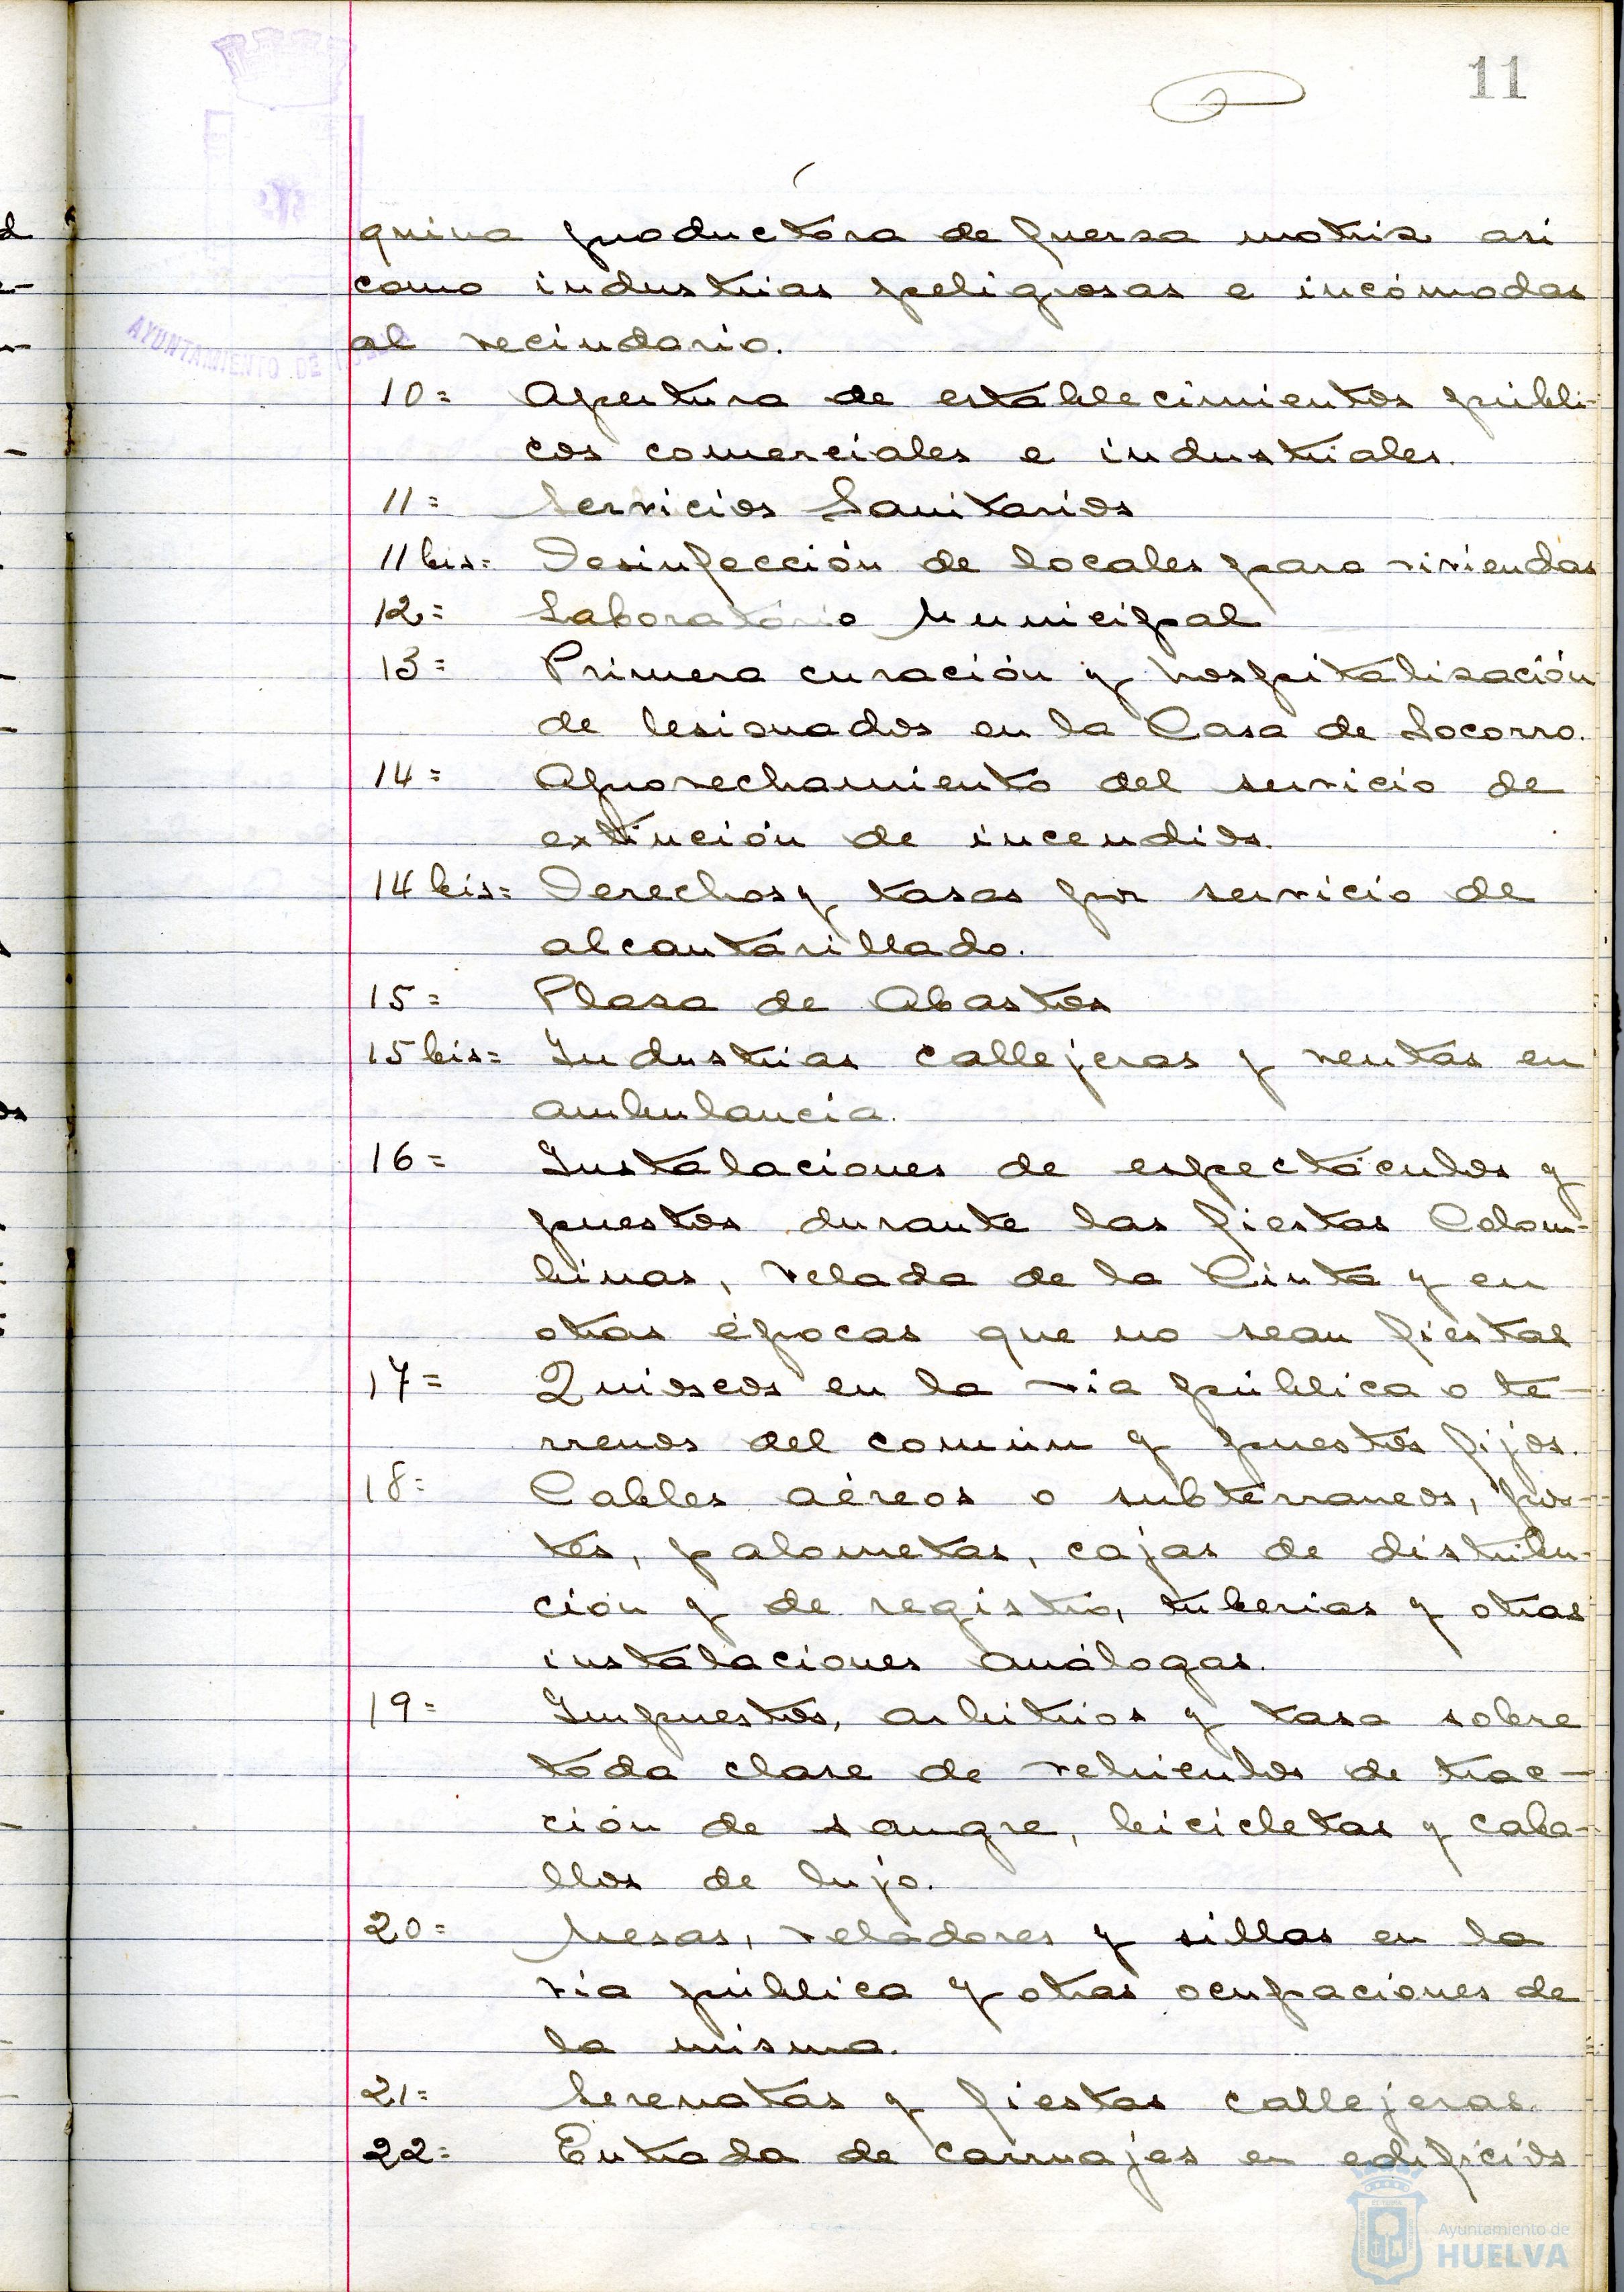 11
quina productora de fuerza motriz asi
como industrias peligrosas e incómodas
al vecindario.
10= Apertura de establecimientos públi-
cos comerciales e industriales.
11= Servicios Sanitarios
11 bis= Desinfección de locales para viviendas
12= Laboratorio Municipal
13= Primera curación y hospitalización
de lesionados en la Casa de Socorro.
14= Aprovechamiento del servicio de
extinción de incendios.
14 bis= Derechos y tasas por servicio de
alcantarillado.
15= Plaza de Abastos
15 bis= Industrias callejeras y ventas en
ambulancia.
16= Instalaciones de espectáculos y
puestos durante las fiestas Colom-
binas, Velada de la Cinta y en
otras épocas que no sean fiestas
17= Quioscos en la via pública o te-
rrenos del común y puestos fijos.
18= Cables aéreos o subterraneos, pos-
tes, palometas, cajas de distribu-
ción y de registro, tuberias y otras
instalaciones análogas.
19= Impuestos, arbitrios y tasa sobre
toda clase de vehiculos de trac-
ción de sangre, bicicletas y caba-
llos de lujo.
20= Mesas, veladores y sillas en la
via pública y otras ocupaciones de
la misma.
21= Serenatas y fiestas callejeras.
22= Entrada de carruajes en edificios
AYUNTAMIENTO DE HUELVA
Ayuntamiento de
HUELVA